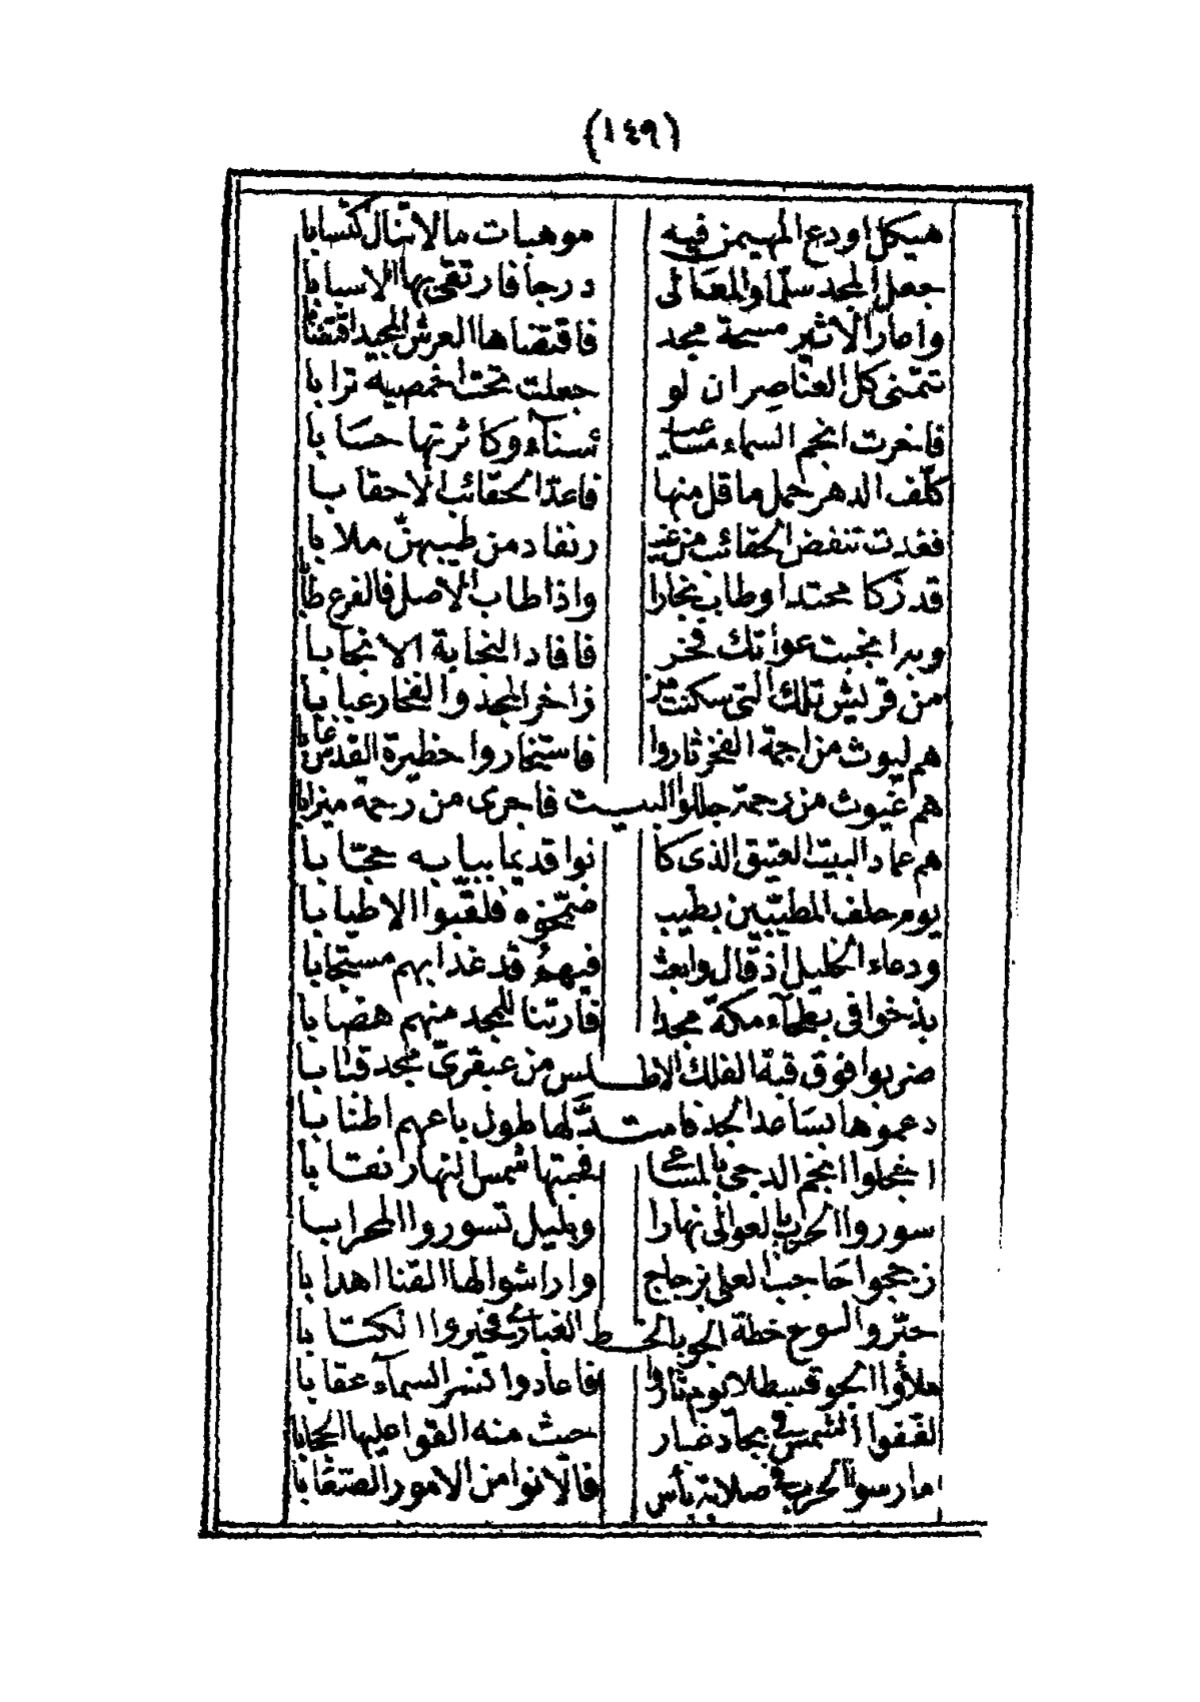 (١٤٩)
هيكل اودع المهيمن فيه موهبات ما لا تنال كتسابا
جعل المجد سلما والمعالى درجا فارتقى بها الاسبابا
واصار الاثير مسحة مجد فاقتضاها العرش المجيد اقتضابا
تتمنى كل العناصر ان لو جعلت تحت اخمصيه ترابا
فاخرت انجم السماء مساعيه سناء وكاثرتها حسابا
كلف الدهر حمل ما قل منها فاعد الحقائب الاحقابا
فغدت تنفض الحقائب من غير نفاد من طيبهن ملابا
قد زكا محتدا وطاب نجارا واذا طاب الاصل فالفرع طابا
وبه انجبت عواتك فخر فافاد النجابة الانجابا
من قريش تلك التى سكنت زاخر المجد والفخار عبابا
هم ليوث من اجمة الفخر ثاروا فاستخاروا حظيرة القدس غابا
هم غيوث من رحمة جللوا البيت فاجرى من رحمة ميزابا
هم عماد البيت العتيق الذى كا نوا قديما ببابه حجابا
يوم حلف المطيبين بطيب ضمخوه فلقبوا الاطيابا
ودعاء الخليل اذ قال وابعث فيهم قد غدا بهم مستجابا
بذخوا فى بطحاء مكة مجدا فارتنا للمجد منهم هضابا
ضربوا فوق قبة الفلك الاطلس من عبقرى مجد قبابا
دعموها بساعد الجد فامتد لها طول باعهم اطنابا
اخجلوا انجم الدجى بالمساعى شمس النهار نقابا
سوروا الحرب بالعوالى نهارا وبليل تسوروا المحرابا
زججوا حاجب العلى بزجاج واراشوا لها القنا اهدابا
خطة الجو بالخط الكتابا
ملأوا الجو قسطلا يوم ثاروا فاعادوا نسر السماء عقابا
لففوا الشمس فى بجاد ضباب حيث منه القوا عليها الحجابا
مارسوا الحرب فى صلابة بأس فالانوا من الامور الصعابا